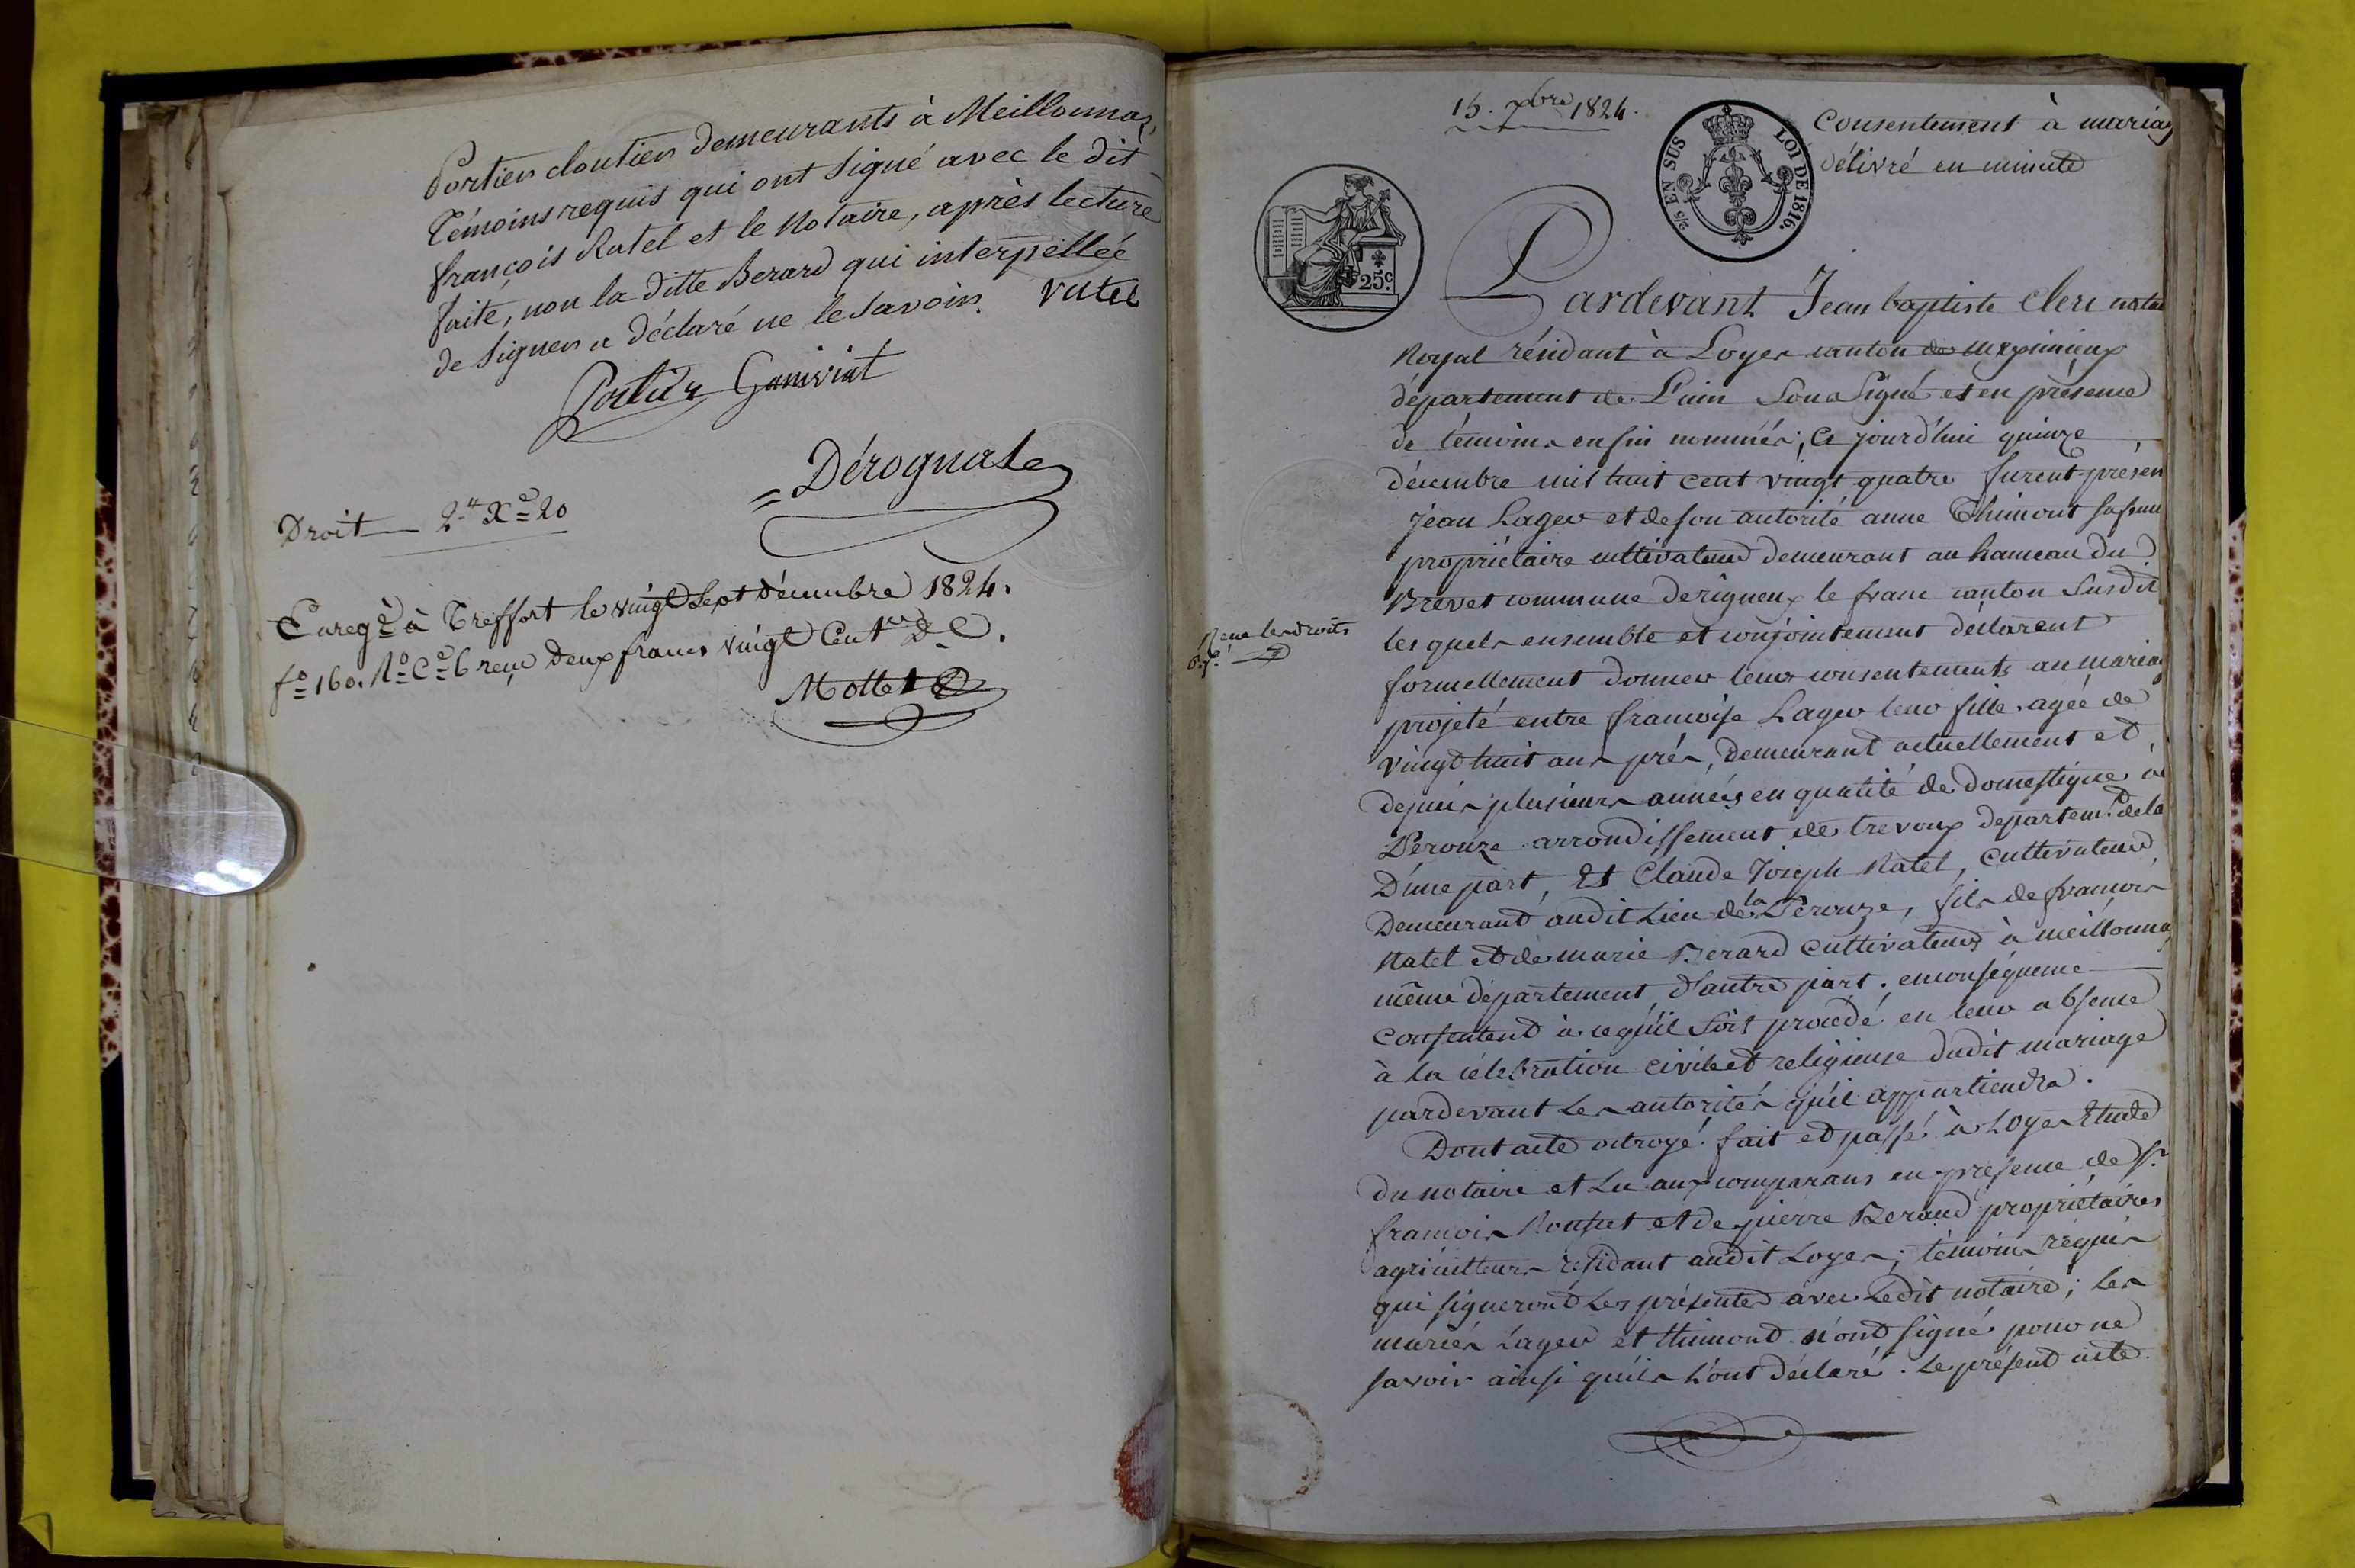 Portier cloutier demeurants à Meillonnas,
témoins requis qui ont signé avec le dit
françois Ratel et le Notaire, après lecture
faite, non la ditte Berard qui interpellée
de signer a déclaré ne le savoir. ratel
Portier Ganivint
=Dérognat
Droit — 2.ᶠ Xᵉ= 20
Enregé à Treffort le vingt Sept décembre 1824.
fº= 160. Rº= Cᵉ= 6 reçu deux francs vingt Centᵉˢ D. C.
Mottet
15. xbre 1824.
Consentement à mariag
délivré en minute
2/5 EN SUS
LOI DE 1816.
25c.
Pardevant Jean baptiste Clerc notai
Royal résidant à Loyes canton de meximieux
département de L'ain Soussigné et en présence
de témoins en fin nommés; Ce jourd'hui quinze
décembre mil huit cent vingt quatre furent présen
jean Lager et de son autorité anne Thimont sa femme
propriétaire cultivateurs demeurant au hameau du
Brevet commune de rigneux le franc canton Susdit
les quels ensemble et conjointement déclarent
formellement donner leurs consentements au mariag
projeté entre francoise Lager leur fille agée de
vingt huit ans près, demeurant actuellement et
depuis plusieurs années en qualité de domestique a
Pérouze arrondissement de trevoux departem.t de la
D'une part, Et Claude Joseph Ratel, Cultivateur
Demeurant audit Lieu de la Pérouze, fils de francois
Ratel et de marie Berard cultivateurs à meillonna
même département, d'autre part. en conséquence
Consentent à ce qu'il soit procédé en leur absence
à la célébration civile et religieuse dudit mariage
pardevant Les autorités qu'il appartiendra.
Dont acte octroyé. fait et passé à Loyes Etude
du notaire et Lu aux comparans en présence de Sr.
francois Rousset et de pierre Beraud propriétaires
agriculteurs résidant audit Loyes; témoins requis
qui signeront Les présentes avec Ledit notaire; Les
mariés Lager et thimond n'ont signé pour ne
savoir ainsi qu'ils L'ont déclaré. Le présent acte